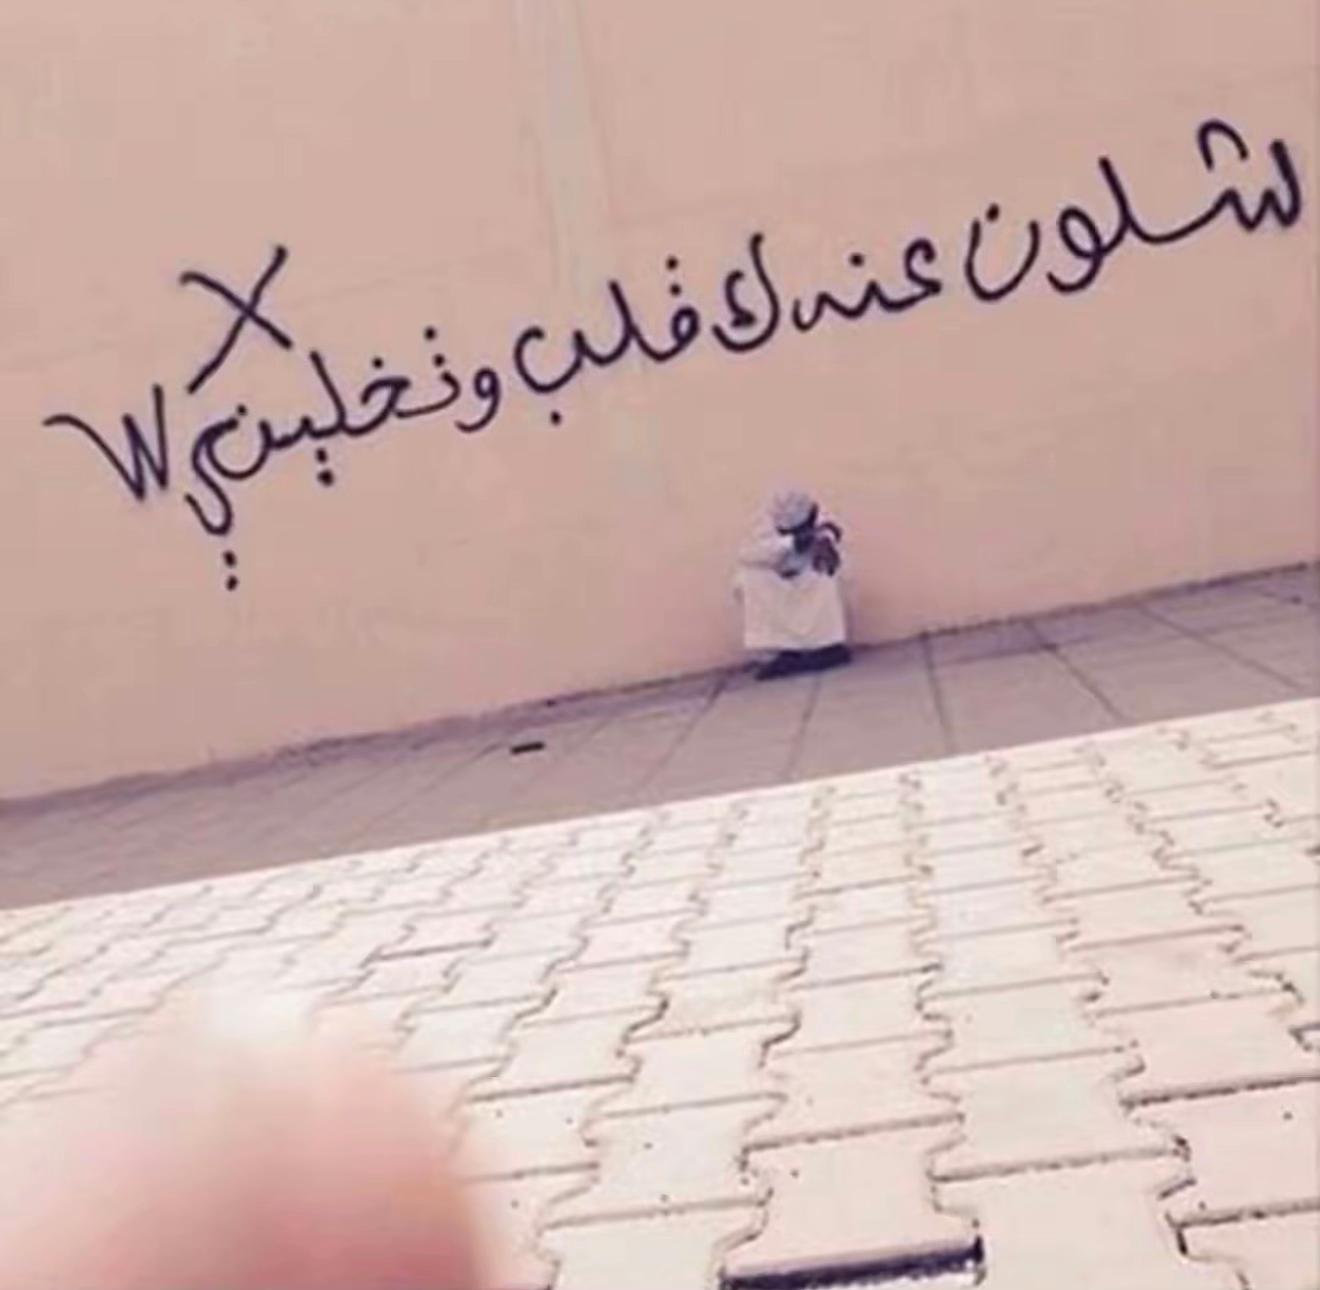 شلون عندك قلب وتخليني W X